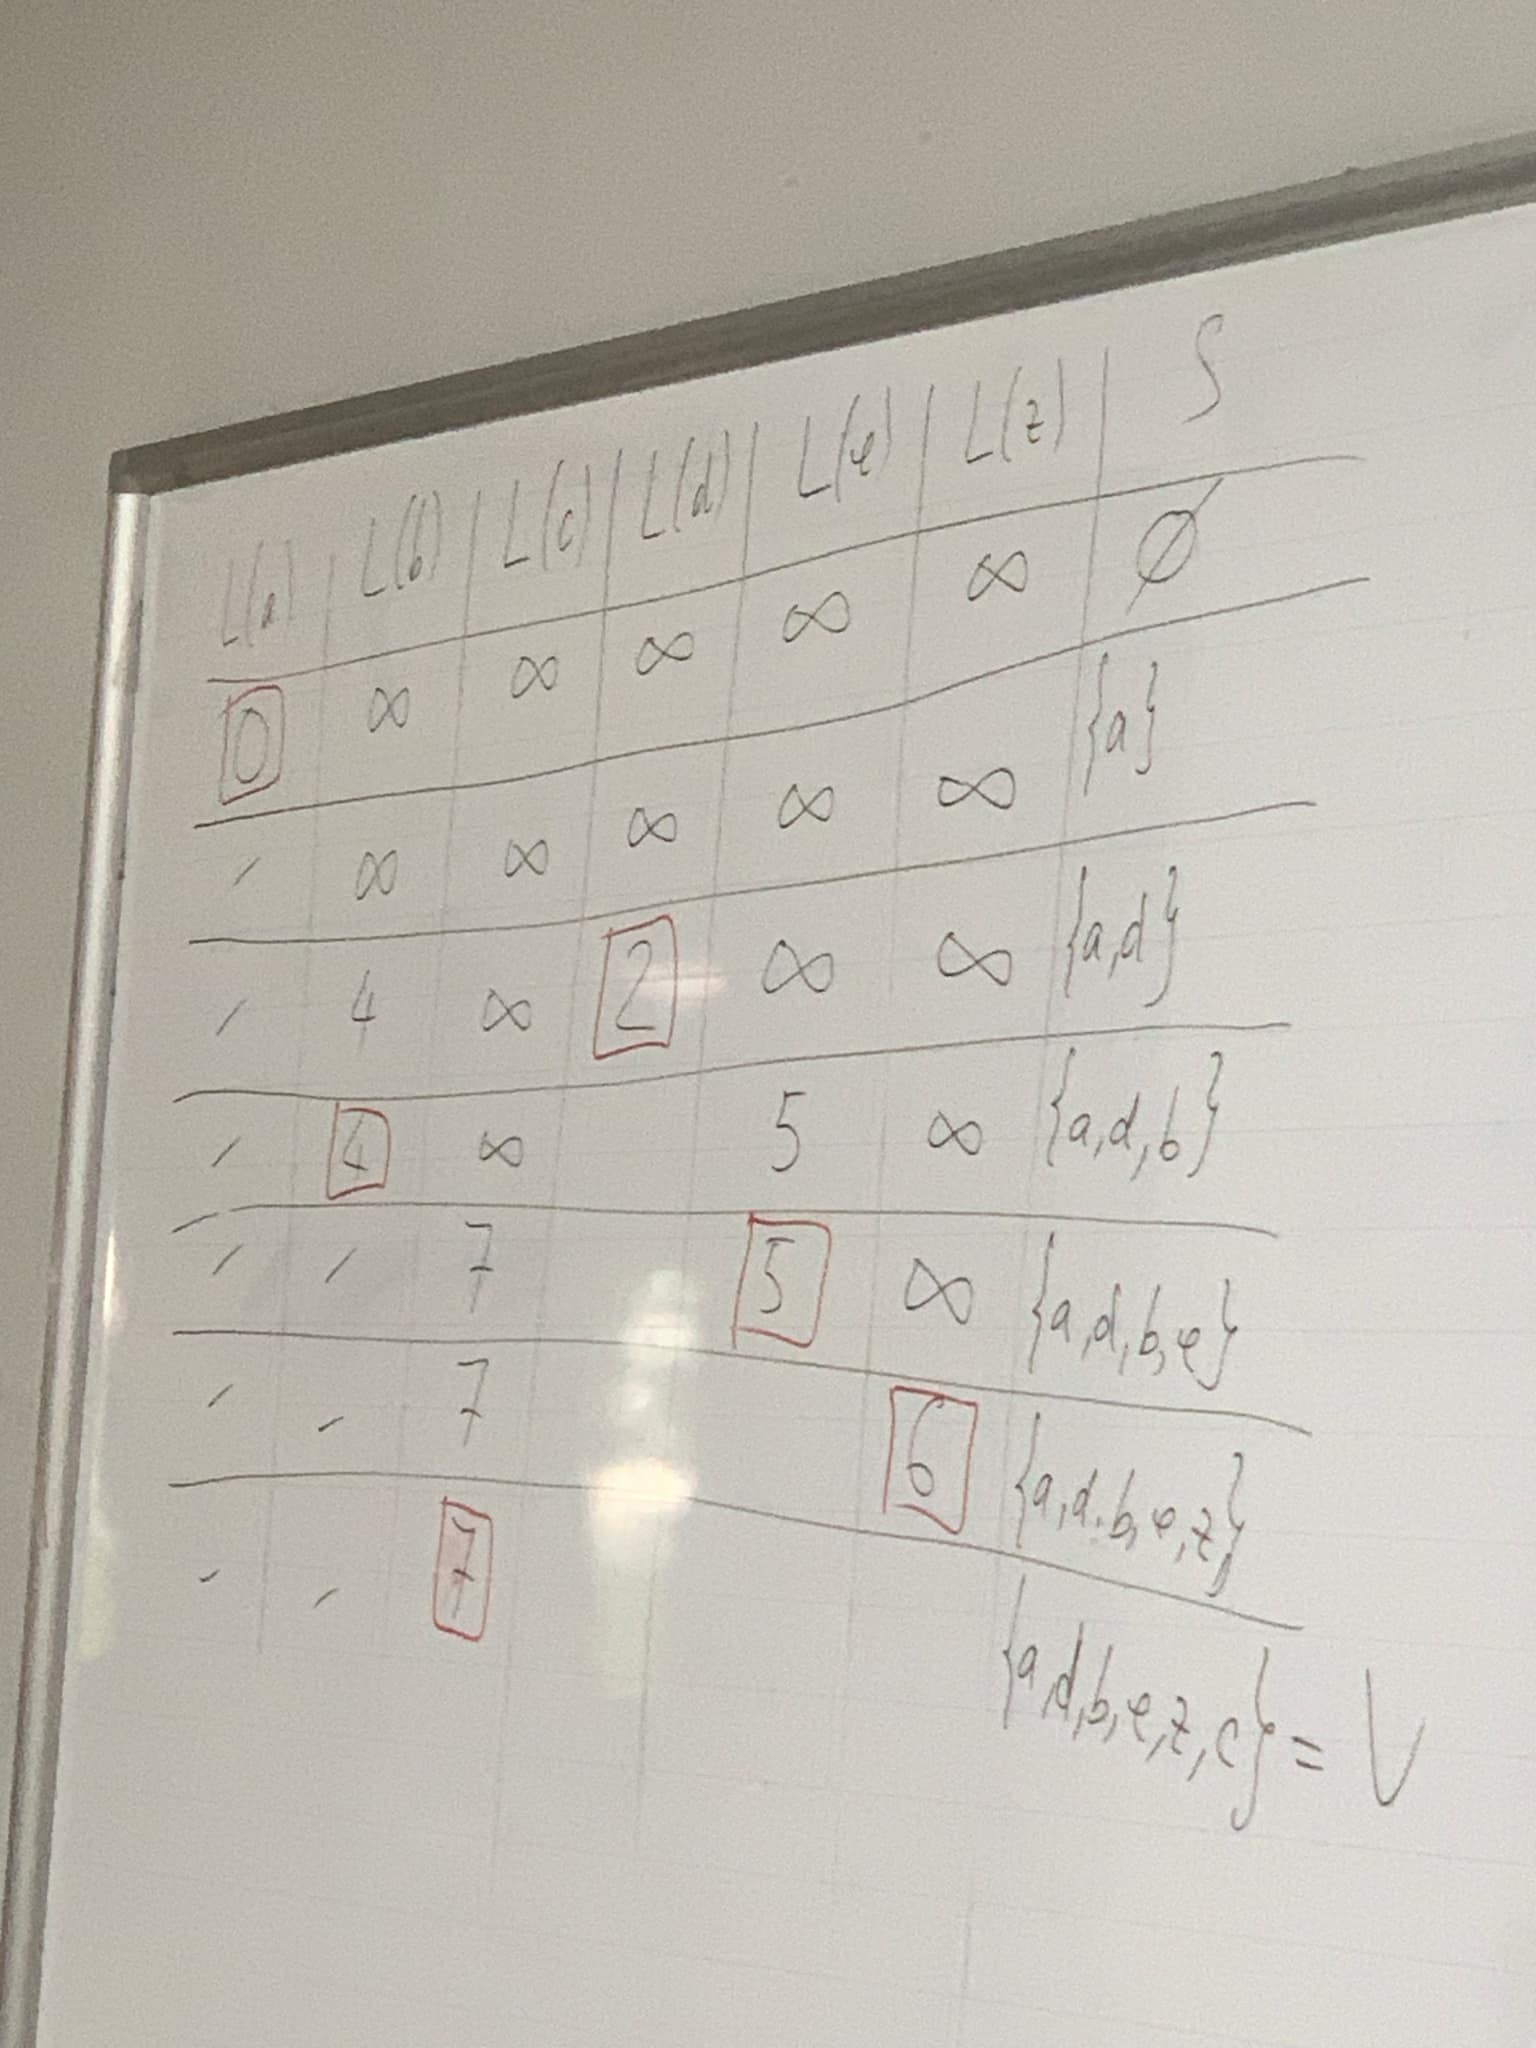 L(a) | L(b) | L(c) | L(d) | L(e) | L(z) | S
0 ∞ ∞ ∞ ∞ ∞ ∅
∞ ∞ ∞ ∞ ∞ {a}
4 ∞ 2 ∞ ∞ {a,d}
4 ∞ 5 ∞ {a,d,b}
7 5 ∞ {a,d,b,e}
7 6 {a,d,b,e,z}
7 {a,d,b,e,z,c} = V